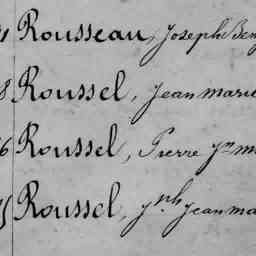 Rousseau, Joseph Benj
8 Roussel, Jean marie
6 Roussel, Pierre Jn m
Roussel, Jph Jean ma